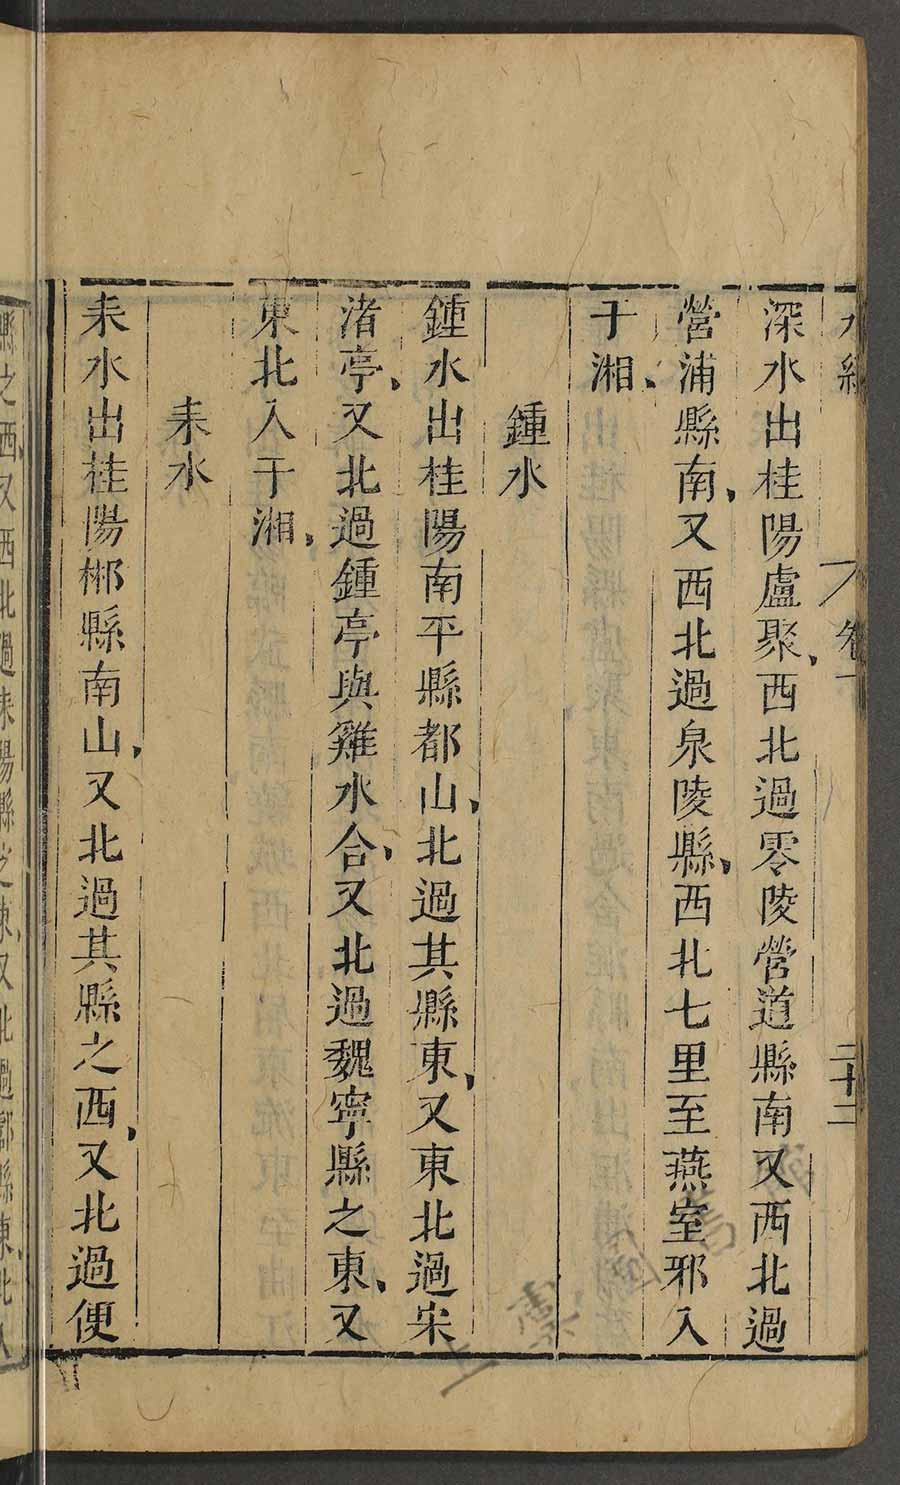 水經 卷下 二十二
深水出桂陽盧聚、西北過零陵營道縣南又西北過
營浦縣南、又西北過泉陵縣、西北七里至燕室邪入
于湘、
鍾水
鍾水出桂陽南平縣都山、北過其縣東、又東北過宋
渚亭、又北過鍾亭與雞水合、又北過魏寧縣之東、又
東北入于湘、
耒水
耒水出桂陽郴縣南山、又北過其縣之西、又北過便
縣之西、又西北過耒陽縣之東、又北過酃縣東、北入